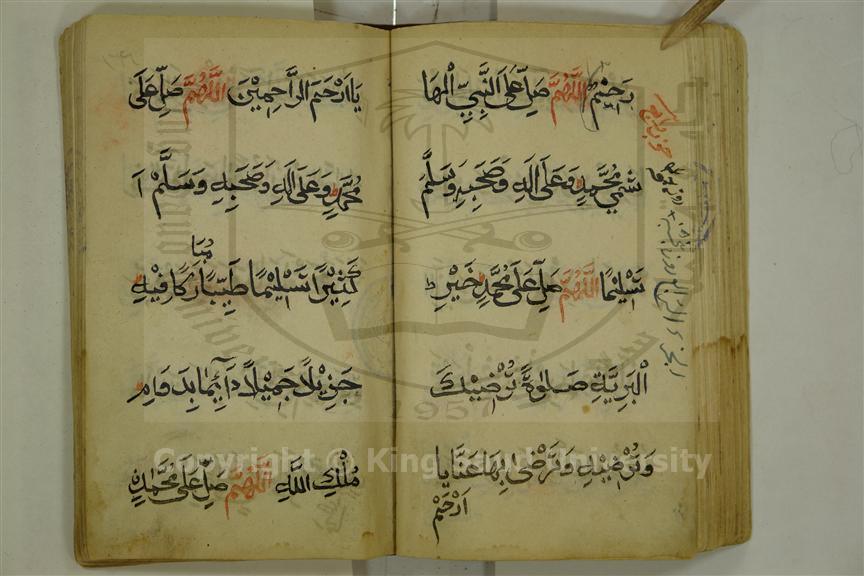 رَحِيْمٌ اَللّٰهُمَّ صَلِّ عَلَى النَّبِيِّ الْهَا
شِمِيِّ مُحَمَّدٍ وَعَلٰى اٰلِهٖ وَصَحْبِهٖ وَسَلَّمَ
تَسْلِيْمًا اَللّٰهُمَّ صَلِّ عَلٰى مُحَمَّدٍ خَيْرِ
الْبَرِيَّةِ صَلٰوةً تُرْضِيْكَ
وَتُرْضِيْهِ وَتَرْضٰى بِهَا عَنَّا يَا
اَرْحَمَ
يَا اَرْحَمَ الرَّاحِمِيْنَ اَللّٰهُمَّ صَلِّ عَلٰى
مُحَمَّدٍ وَعَلٰى اٰلِهٖ وَصَحْبِهٖ وَسَلَّمْ
كَثِيْرًا تَسْلِيْمًا طَيِّبًا مُبَارَكًا فِيْهِ
جَزِيْلًا جَمِيْلًا دَآئِمًا بِدَوَامِ
مُلْكِ اللّٰهِ اَللّٰهُمَّ صَلِّ عَلٰى مُحَمَّدٍ
1957
Copyright © King Saud University